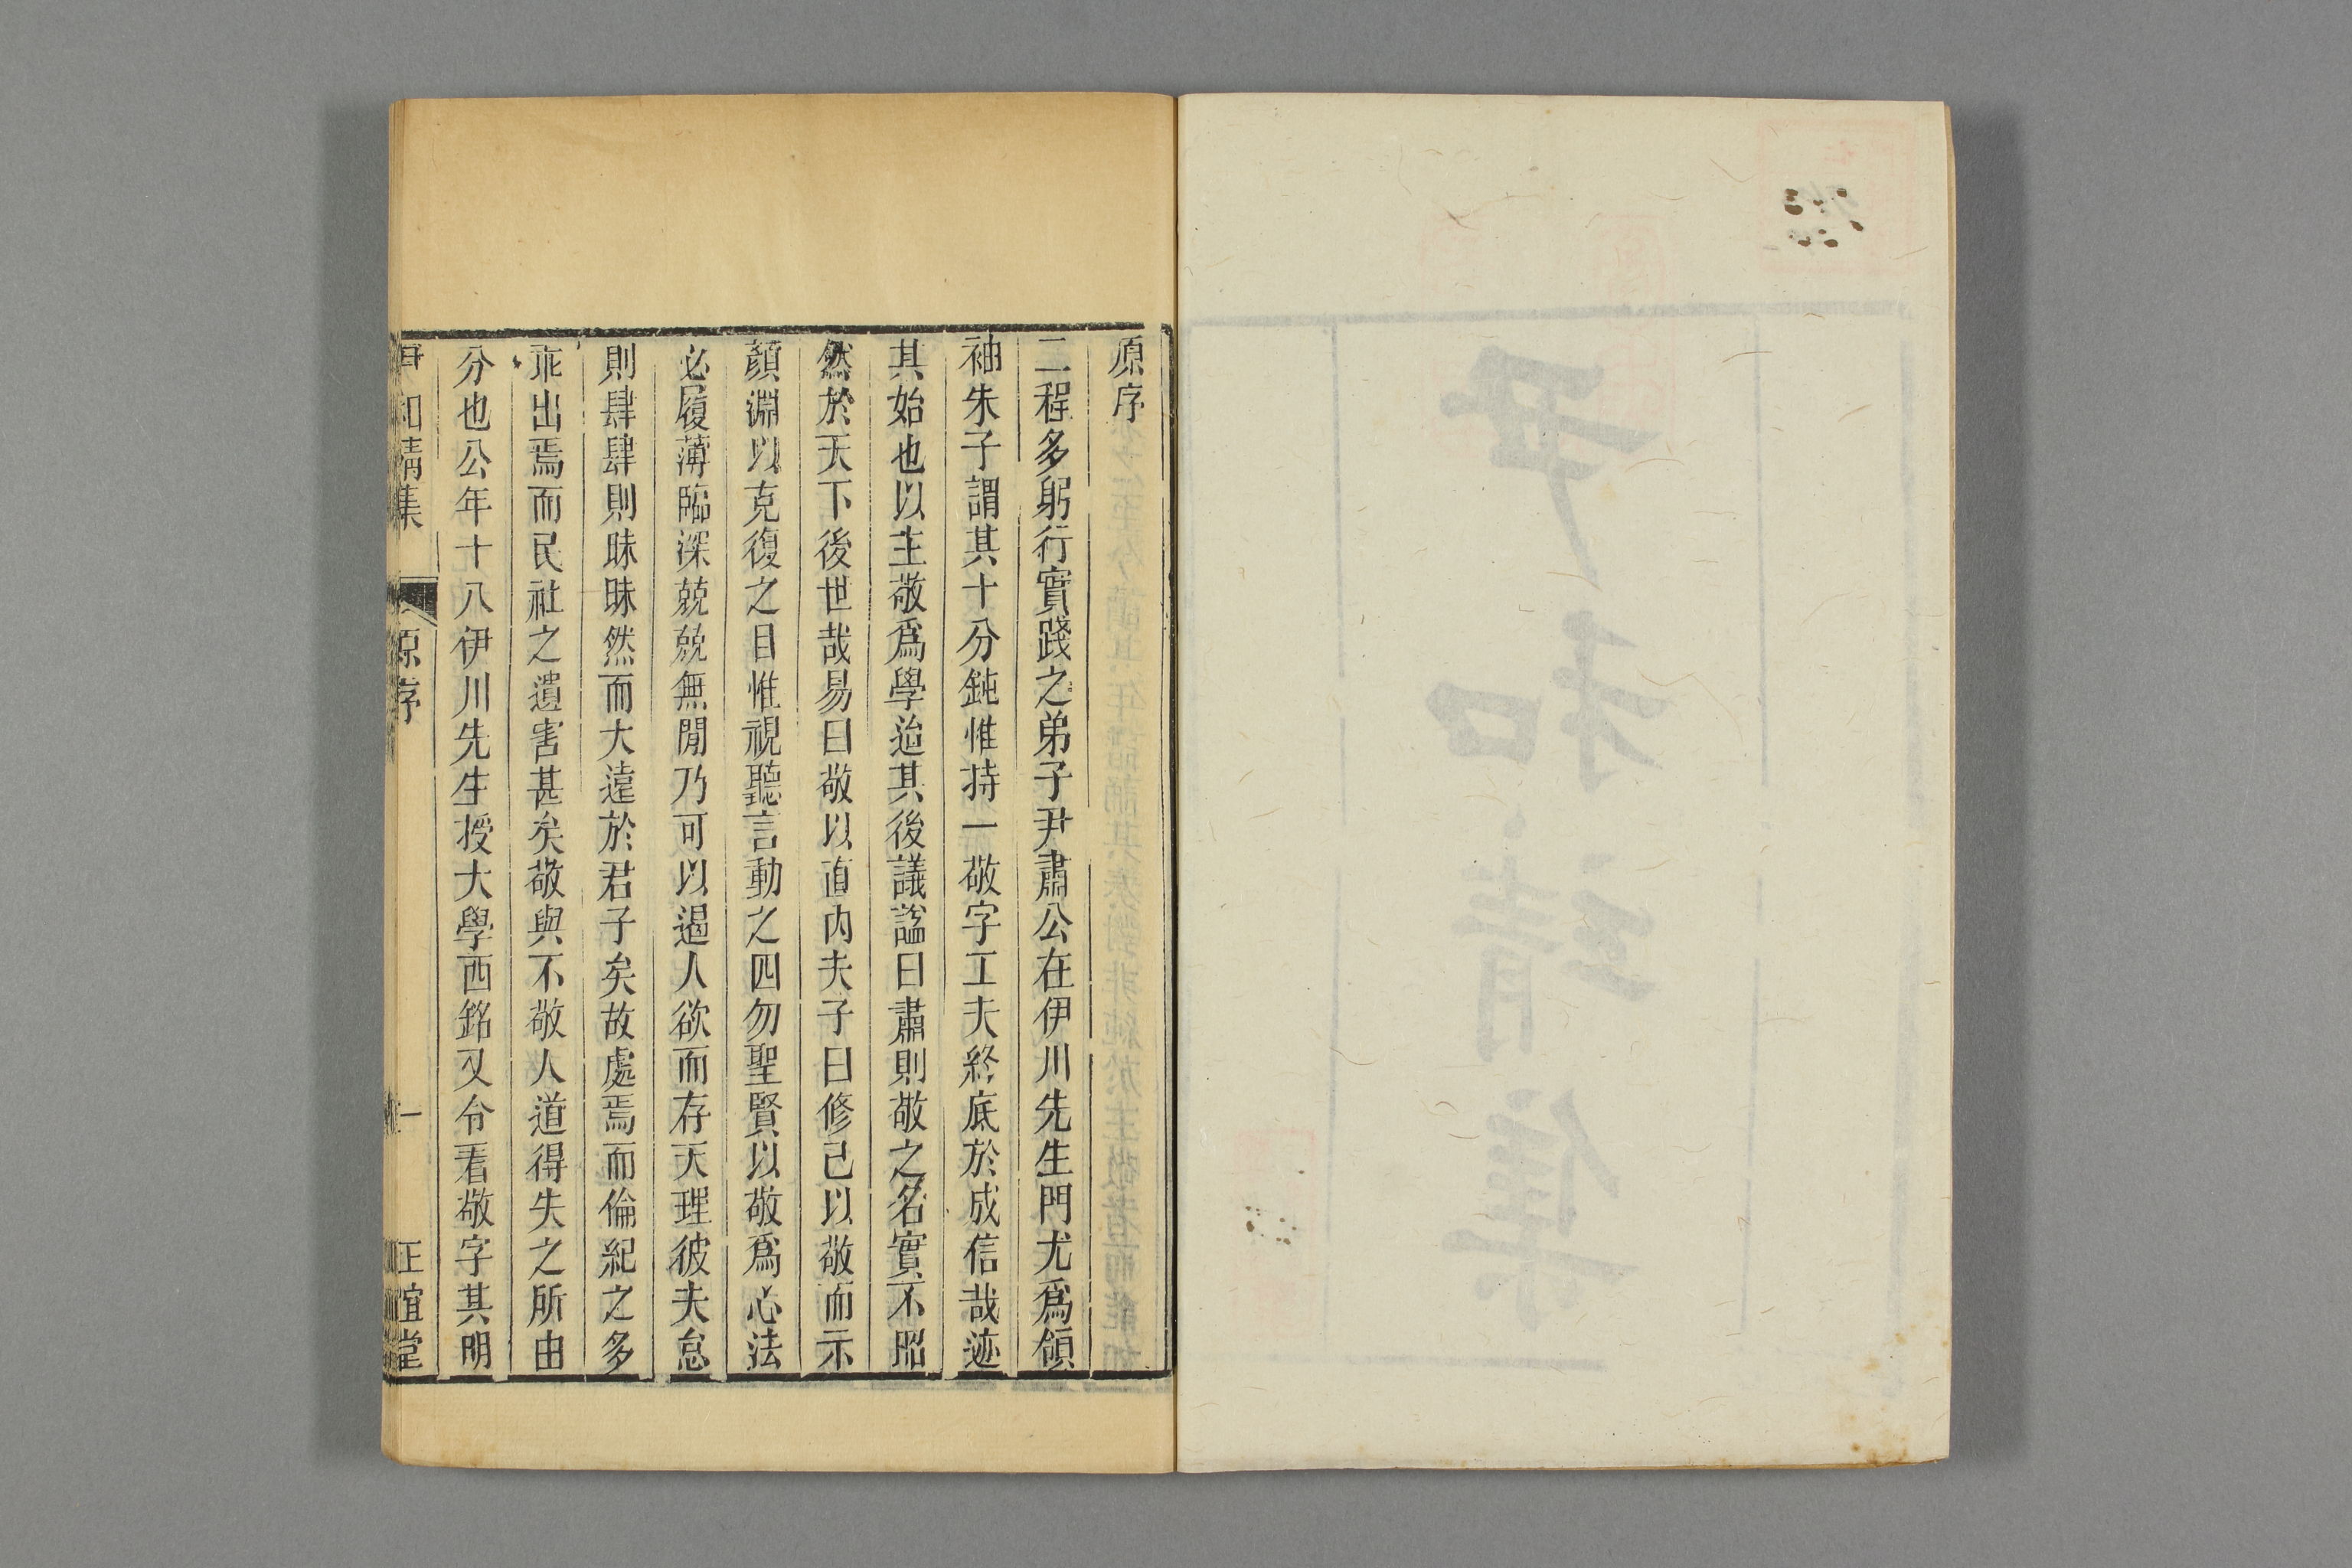 原序
二程多躬行實踐之弟子尹肅公在伊川先生門尤爲領
袖朱子謂其十分鈍惟持一敬字工夫終底於成信哉迹
其始也以主敬爲學迨其後議諡曰肅則敬之名實不昭
然於天下後世哉易曰敬以直內夫子曰修己以敬而示
顏淵以克復之目惟視聽言動之四勿聖賢以敬爲心法
必履薄臨深兢兢無閒乃可以遏人欲而存天理彼夫怠
則肆肆則昧昧然而大違於君子矣故處焉而倫紀之多
乖出焉而民社之遺害甚矣敬與不敬人道得失之所由
分也公年十八伊川先生授大學西銘又令看敬字其明
尹和靖集 原序 一 正誼堂